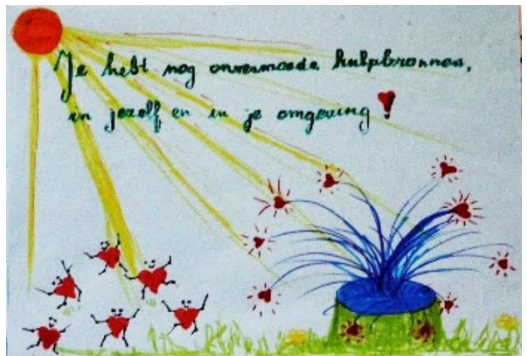 Je hebt nog onvermoede hulpbronnen,
in jezelf en in je omgeving!